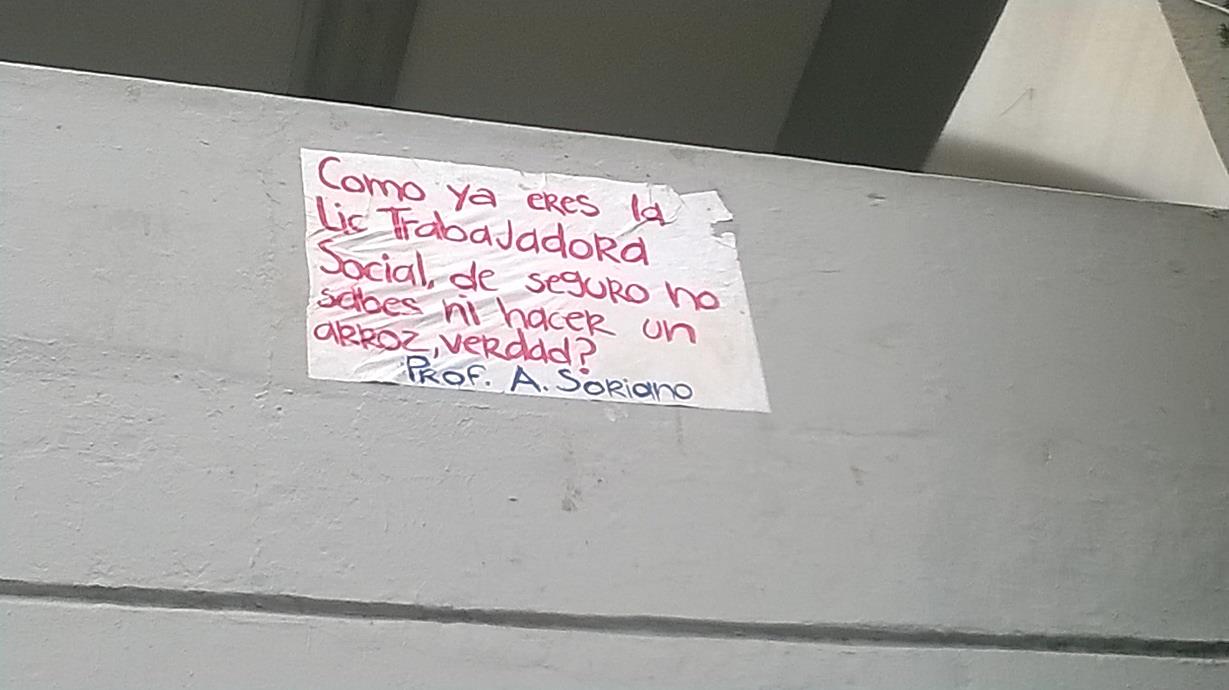 Como ya eres la
Lic Trabajadora
Social, de seguro no
sabes ni hacer un
arroz, verdad?
Prof. A. Soriano